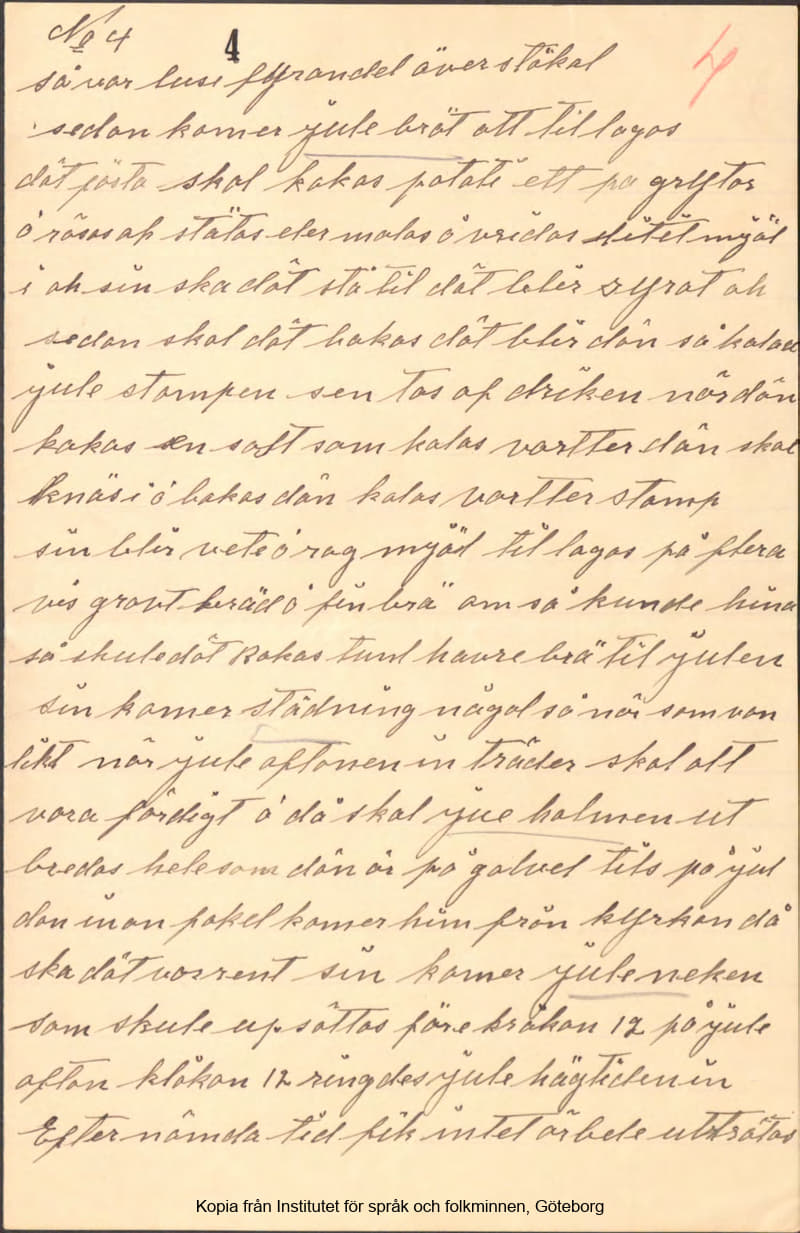 No 4
4
4
så var luse fyrandel över stökal
sedan komer jule bröt att til lagas
dät jästa skal kokas potatis ett pa grytor
ó räsas ah stötas eler malas ó vridas sitèt mjöl
i ah sin ska dät stå til dät blir syrat ah
sedan skal dät bakas dät blir dän så kalad
jule stompen sen tas af driken när dän
kokas en saft som kalas vartter dän skal
knäs i ó bakas dän kalas vartter stomp
sin blir vete ó rag mjöl til lagas på flera
vis gravt bräd ó fin brä om så kunde hina
så skule dät kakas tunt havre brä til julen
sin komer städning någol så när som van
likt när jule aftonen in träder skal alt
vara färdigt ó då skal jue halmen ut
bredas hele som dän är på galvet tils på jul
dan inan fokel komer him från kyrkan då
ska dät vas rent sin komer jule neken
som skule up sättas före kråkan 12 på jule
aftan klåkan 12 ringdes jule hägtiden in
Efter nämda tid fik intet arbete uträtas
Kopia från Institutet för språk och folkminnen, Göteborg